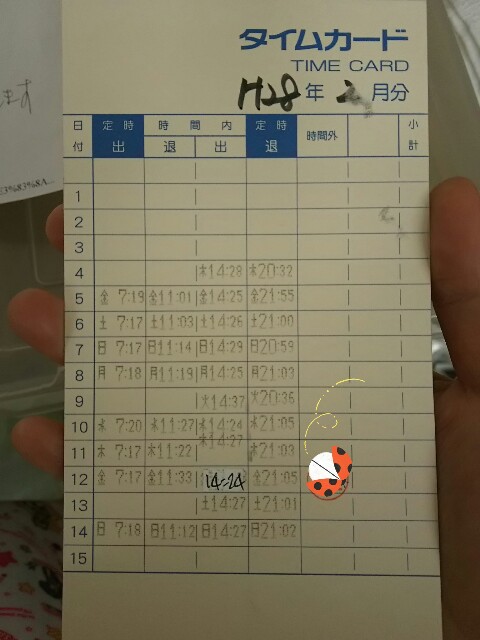 タイムカード
TIME CARD
H28年 2月分
日付 定時出 時間内退 出 定時退 時間外 小計
1
2
3
4 木14:28 木20:32
5 金 7:19 金11:01 金14:25 金21:55
6 土 7:17 土11:03 土14:26 土21:00
7 日 7:17 日11:14 日14:29 日20:59
8 月 7:18 月11:19 月14:25 月21:03
9 火14:37 火20:36
10 水 7:20 水11:27 水14:24 水21:05
11 木 7:17 木11:22 木14:27 木21:03
12 金 7:17 金11:33 14:24 金21:05
13 土14:27 土21:01
14 日 7:18 日11:12 日14:27 日21:02
15
ます